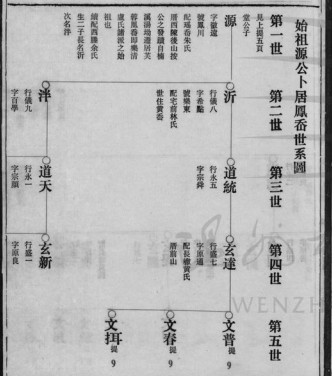 始祖源公卜居鳳岙世系圖
第一世
第二世
第三世
第四世
第五世
見上提五頁
棠公子
源
字徽遠
號鳳川
配瑤岙朱氏
厝西陳後山按
公之晉贖自楠
溪湯㘭遷居芙
蓉鳳岙即樂清
盧氏諸派之始
祖也
續配西塍余氏
生二子長名沂
次名泮
沂
行儀八
字希點
號樂東
配宅前林氏
世住黃岙
道統
行永五
字宗舜
玄達
行盛七
字原通
配長徽黃氏
厝前山
文普 提9
文春 提9
文挕 提9
泮
行儀九
字百學
道天
行永一
字宗顥
玄新
行盛一
字原良
WENZH